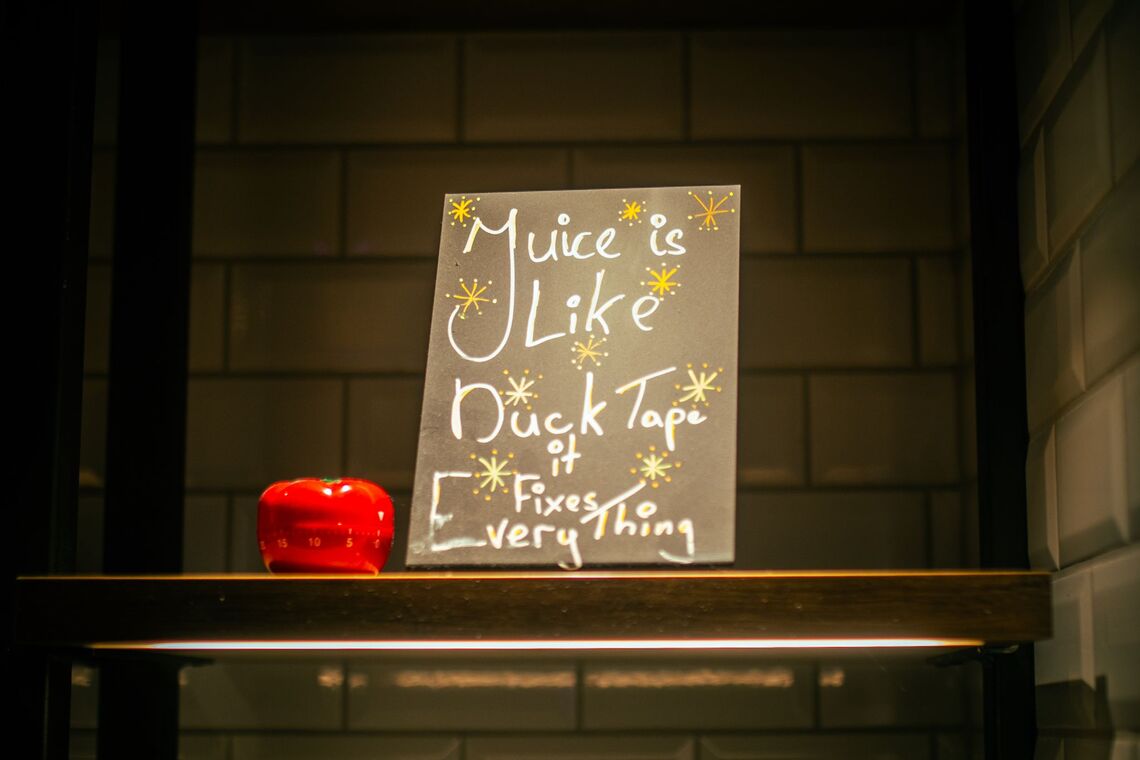 Juice is
Like
Duck Tape
it
Fixes
EveryThing
15 10 5 0